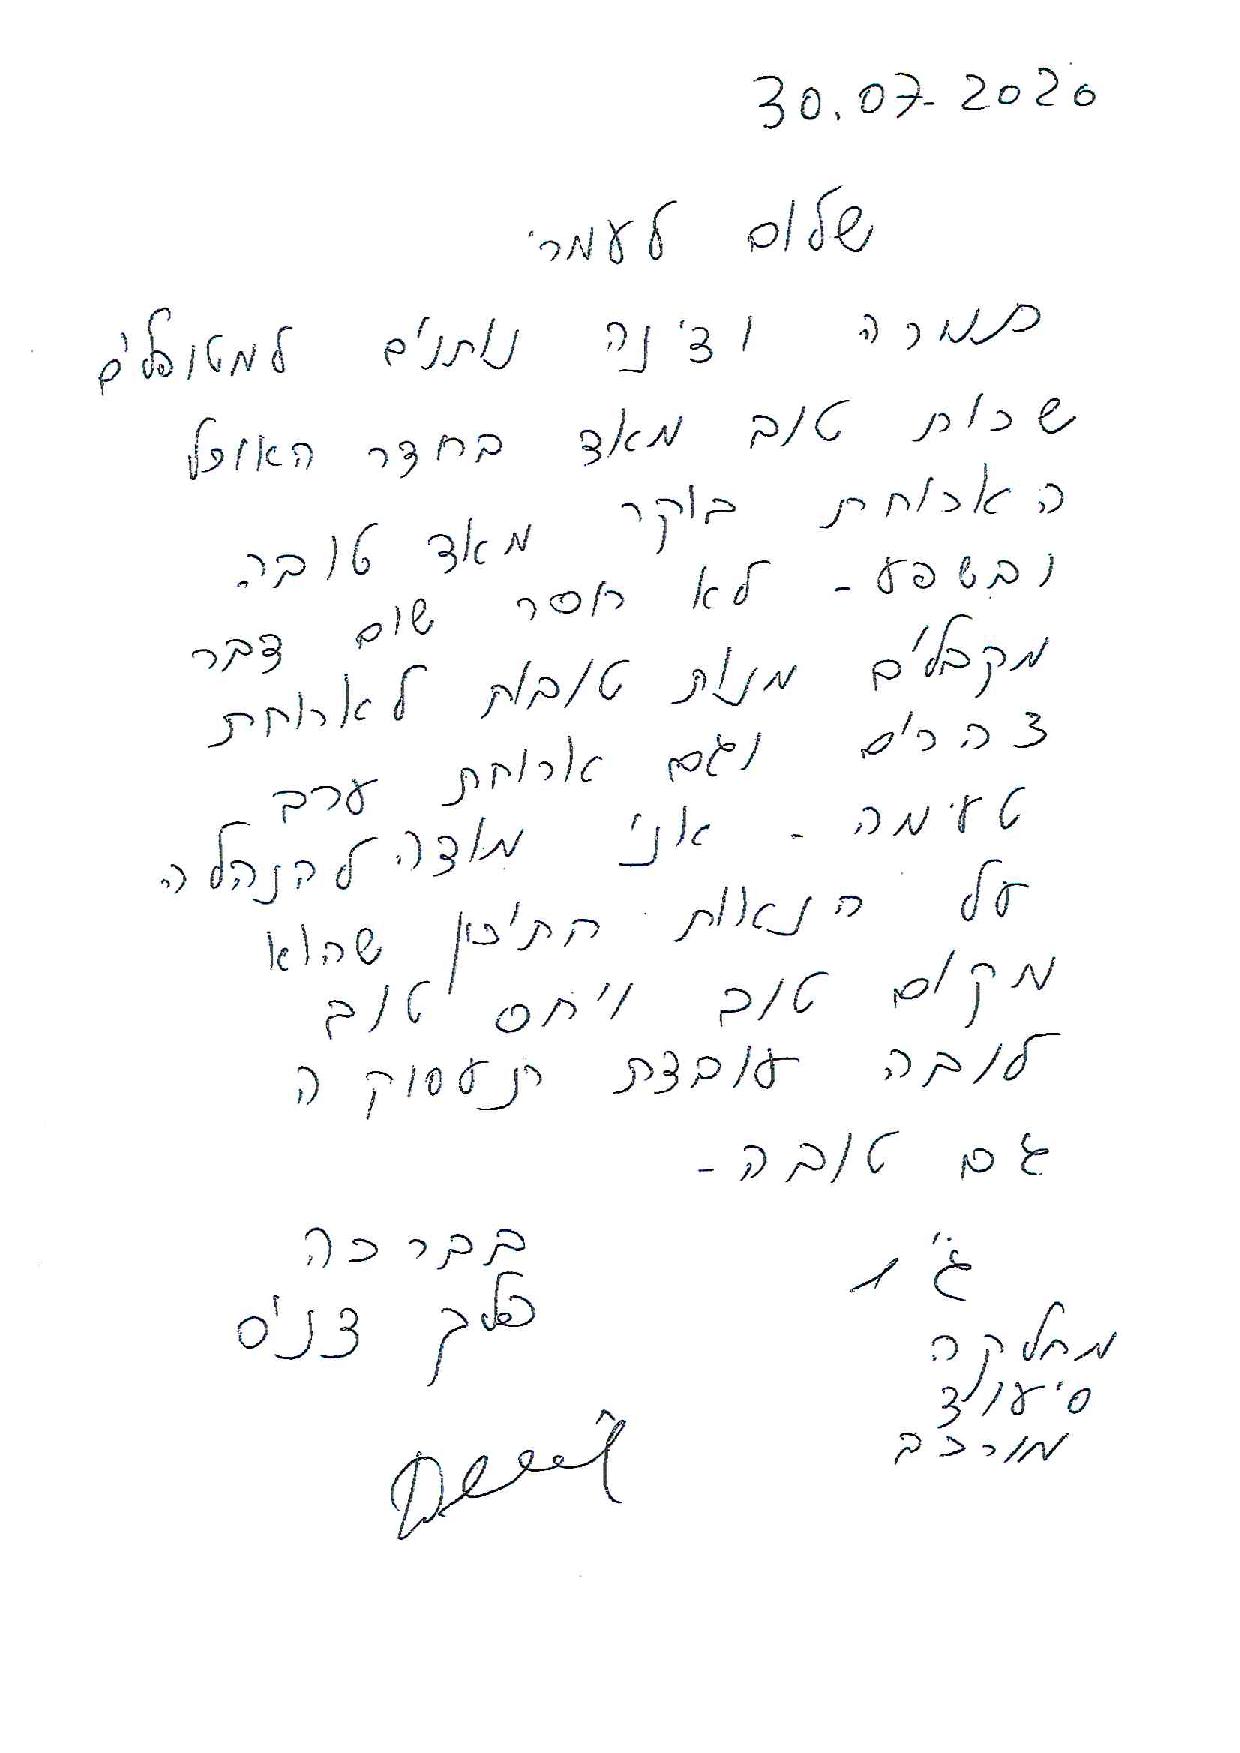 30.07.2020
שלום לעמרי
תמרה ודינה נותנים למטופלים
שרות טוב מאד בחדר האוכל
הארוחת בוקר מאד טובה
ובשפע - לא חסר שום דבר
מקבלים מנות טובות לארוחת
צהרים וגם ארוחת ערב
טעימה - אני מודה להנהלה
על הנאות התיכון שהוא
מקום טוב ויחס טוב
לובה עובדת תעסוקה
גם טובה -
בברכה
פלך דניס
ג"1
מחלקה
סיעוד
מורכב